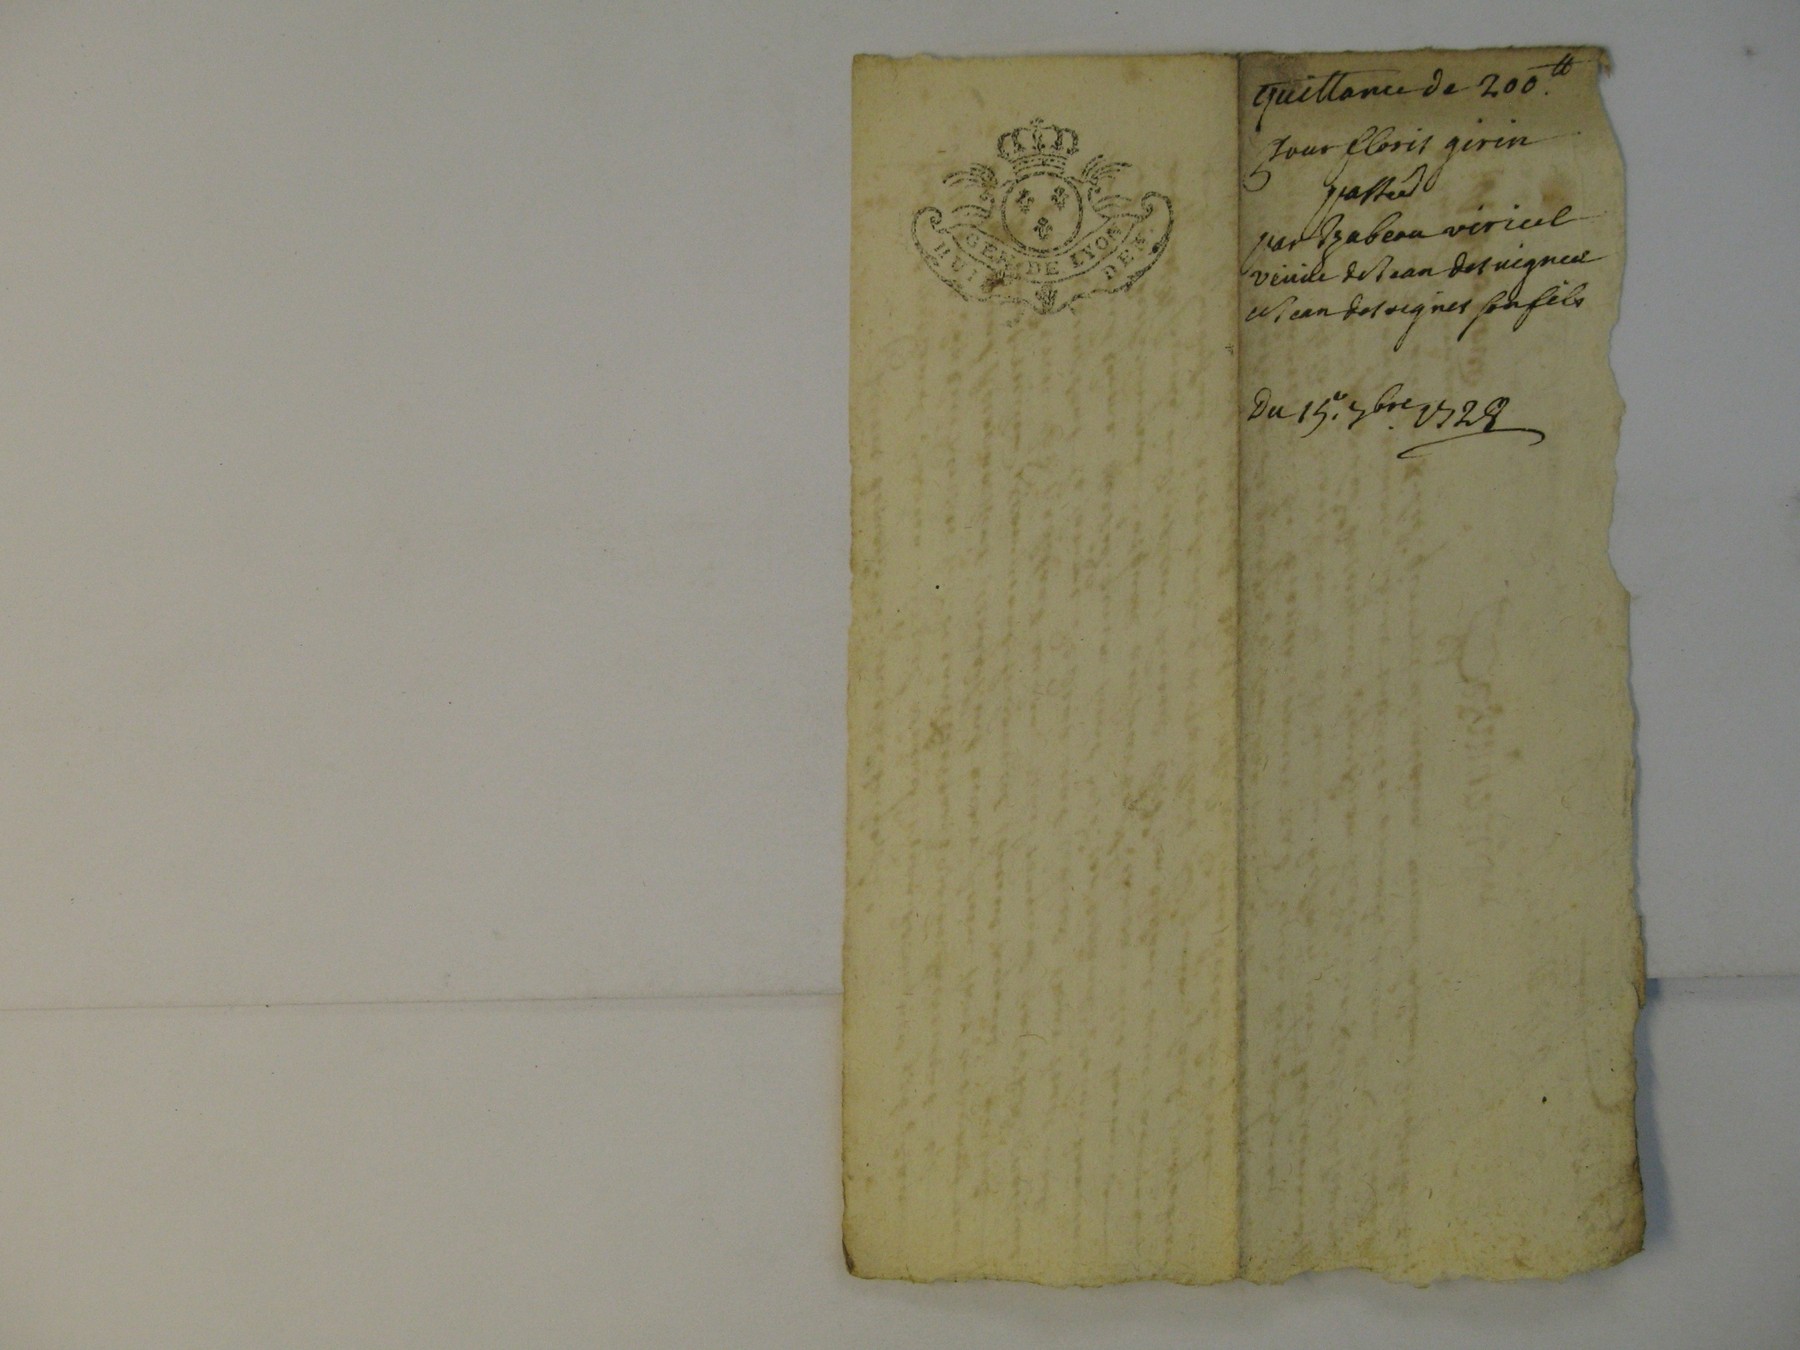 GEN. DE LYON
HUIT DEN.
quittance de 200.tt
pour floris girin
passée
par Izabeau viricel
veuve de Jean desvignes
et Jean desvignes son fils
Du 15.e 7bre. 1728